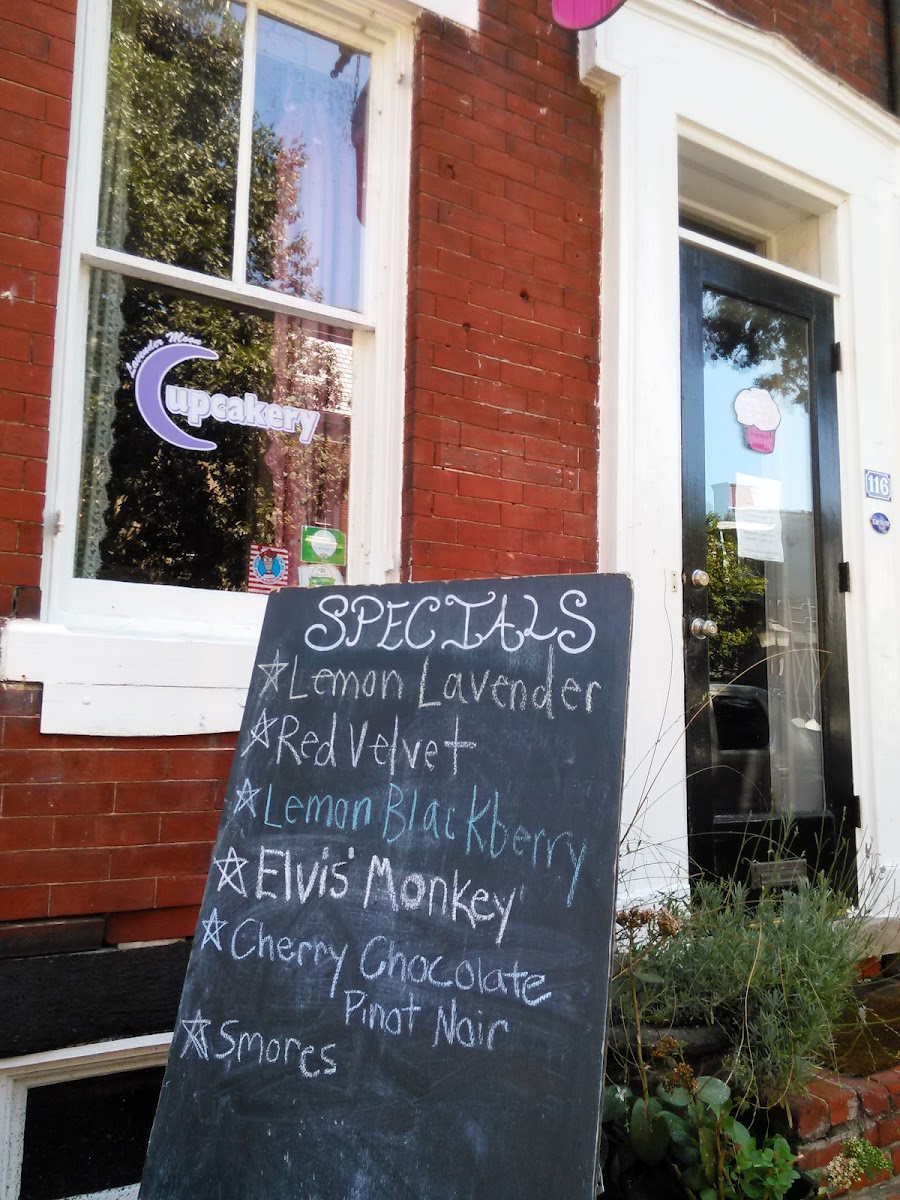 Lavender Moon
Cupcakery
116
SPECIALS
Lemon Lavender
Red Velvet
Lemon Blackberry
Elvis' Monkey
Cherry Chocolate
Pinot Noir
Smores